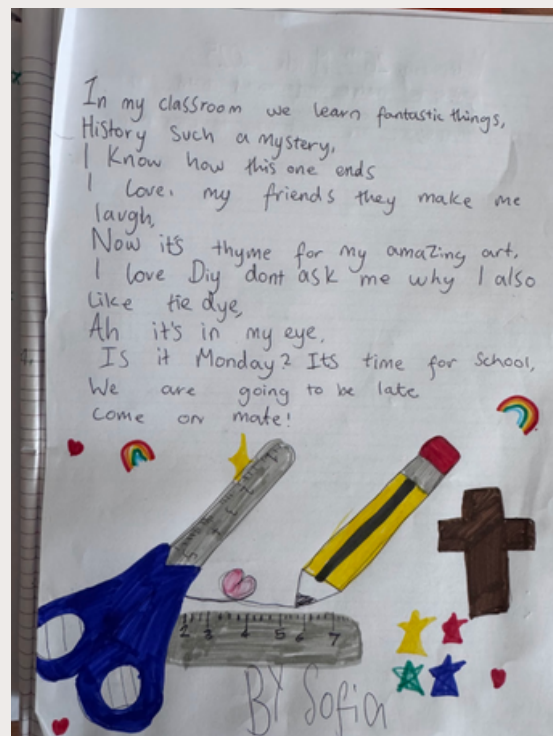 In my classroom we learn fantastic things,
History such a mystery,
I know how this one ends
I love. my friends they make me
laugh,
Now it's thyme for my amazing art,
I love Diy dont ask me why I also
Like tie dye,
Ah it's in my eye,
Is it Monday? Its time for School,
We are going to be late
come on mate!
2 3 4 5 6 7
BY Sofia